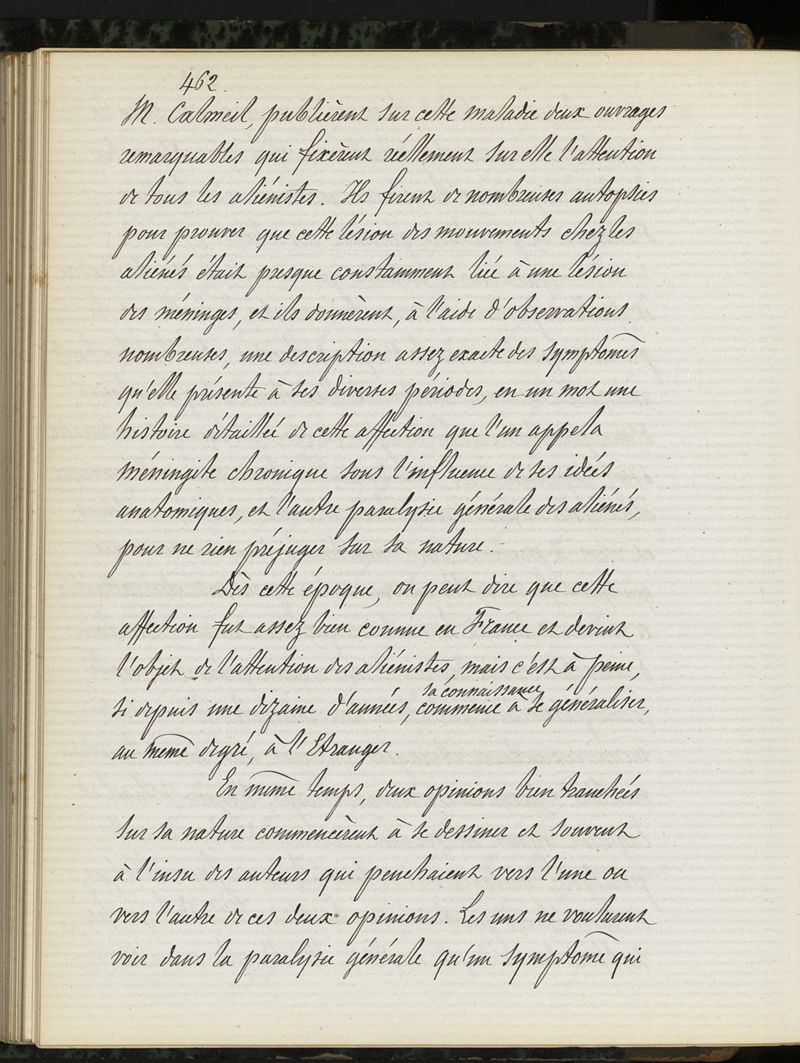 462.
M. Calmeil, publièrent sur cette maladie deux ouvrages
remarquables qui fixèrent réellement sur elle l'attention
de tous les aliénistes. Ils firent de nombreuses autopsies
pour prouver que cette lésion des mouvements chez les
aliénés était presque constamment liée à une lésion
des méninges, et ils donnèrent, à l'aide d'observations
nombreuses, une description assez exacte des symptômes
qu'elle présente à ses diverses périodes, en un mot une
histoire détaillée de cette affection que l'un appela
méningite chronique sous l'influence de ses idées
anatomiques, et l'autre paralysie générale des aliénés,
pour ne rien préjuger sur sa nature.
Dès cette époque, on peut dire que cette
affection fut assez bien connue en France et devint
l'objet de l'attention des aliénistes, mais c'est à peine,
sa connaissance
si depuis une dizaine d'années, commence à se généraliser,
au même degré, à l'Etranger.
En même temps, deux opinions bien tranchées
sur sa nature commencèrent à se dessiner et souvent
à l'insu des auteurs qui penchaient vers l'une ou
vers l'autre de ces deux opinions. Les uns ne voulurent
voir dans la paralysie générale qu'un symptôme qui